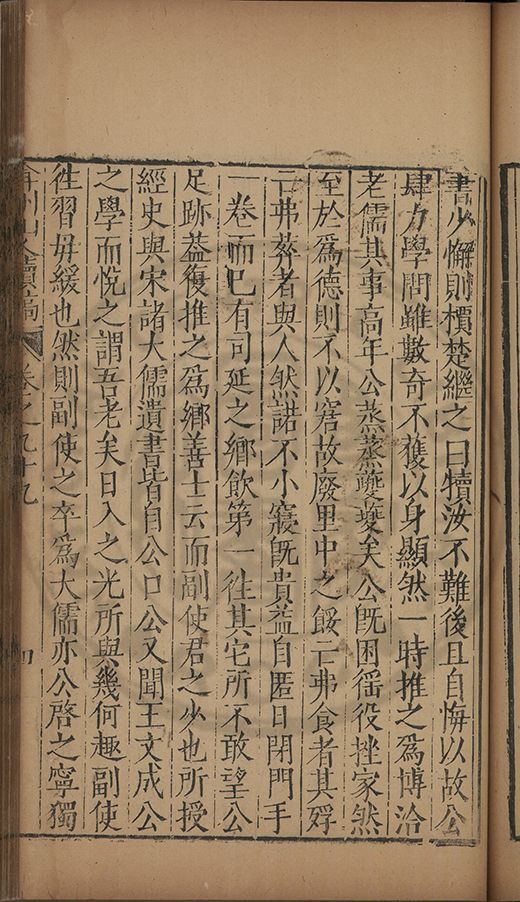 書少懈則檟楚繼之曰犢汝不難後且自悔以故公
肆力學問雖數奇不獲以身顯然一時推之爲博洽
老儒其事高年公蒸蒸夔夔矣公旣困徭役挫家然
至於爲德則不以窘故廢里中之餒亡弗食者其殍
亡弗葬者與人然諾不小寢旣貴益自匿日閉門手
一卷而已有司延之鄉飲第一往其它所不敢望公
足跡葢復推之爲鄉善士云而副使君之少也所授
經史與宋諸大儒遺書皆自公口公又聞王文成公
之學而悅之謂吾老矣日入之光所與幾何趣副使
徃習毋緩也然則副使之卒爲大儒亦公啓之寧獨
弇州山人續稿 卷之九十九